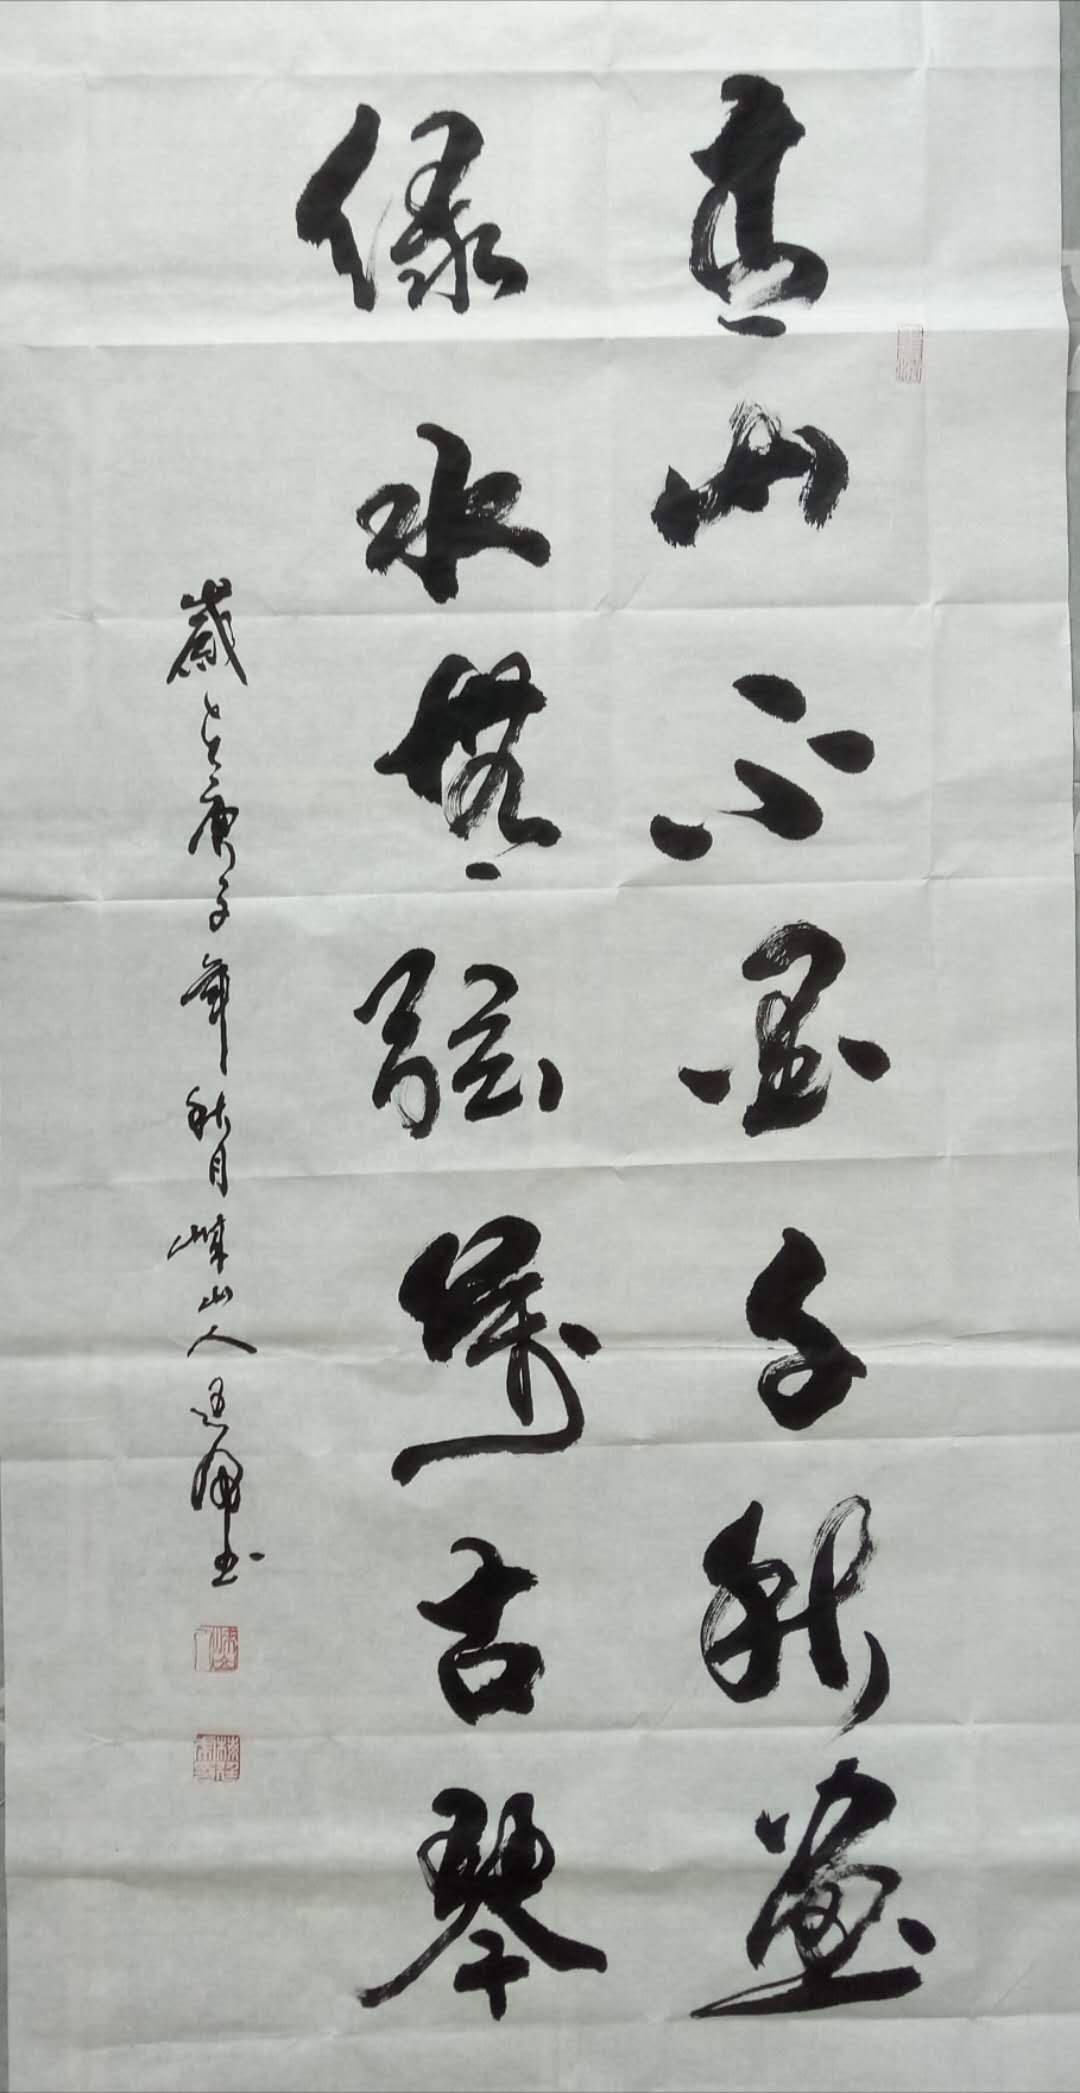 青山不墨千秋画
绿水无弦万古琴
岁在庚子年秋月嶫山人廷雄书